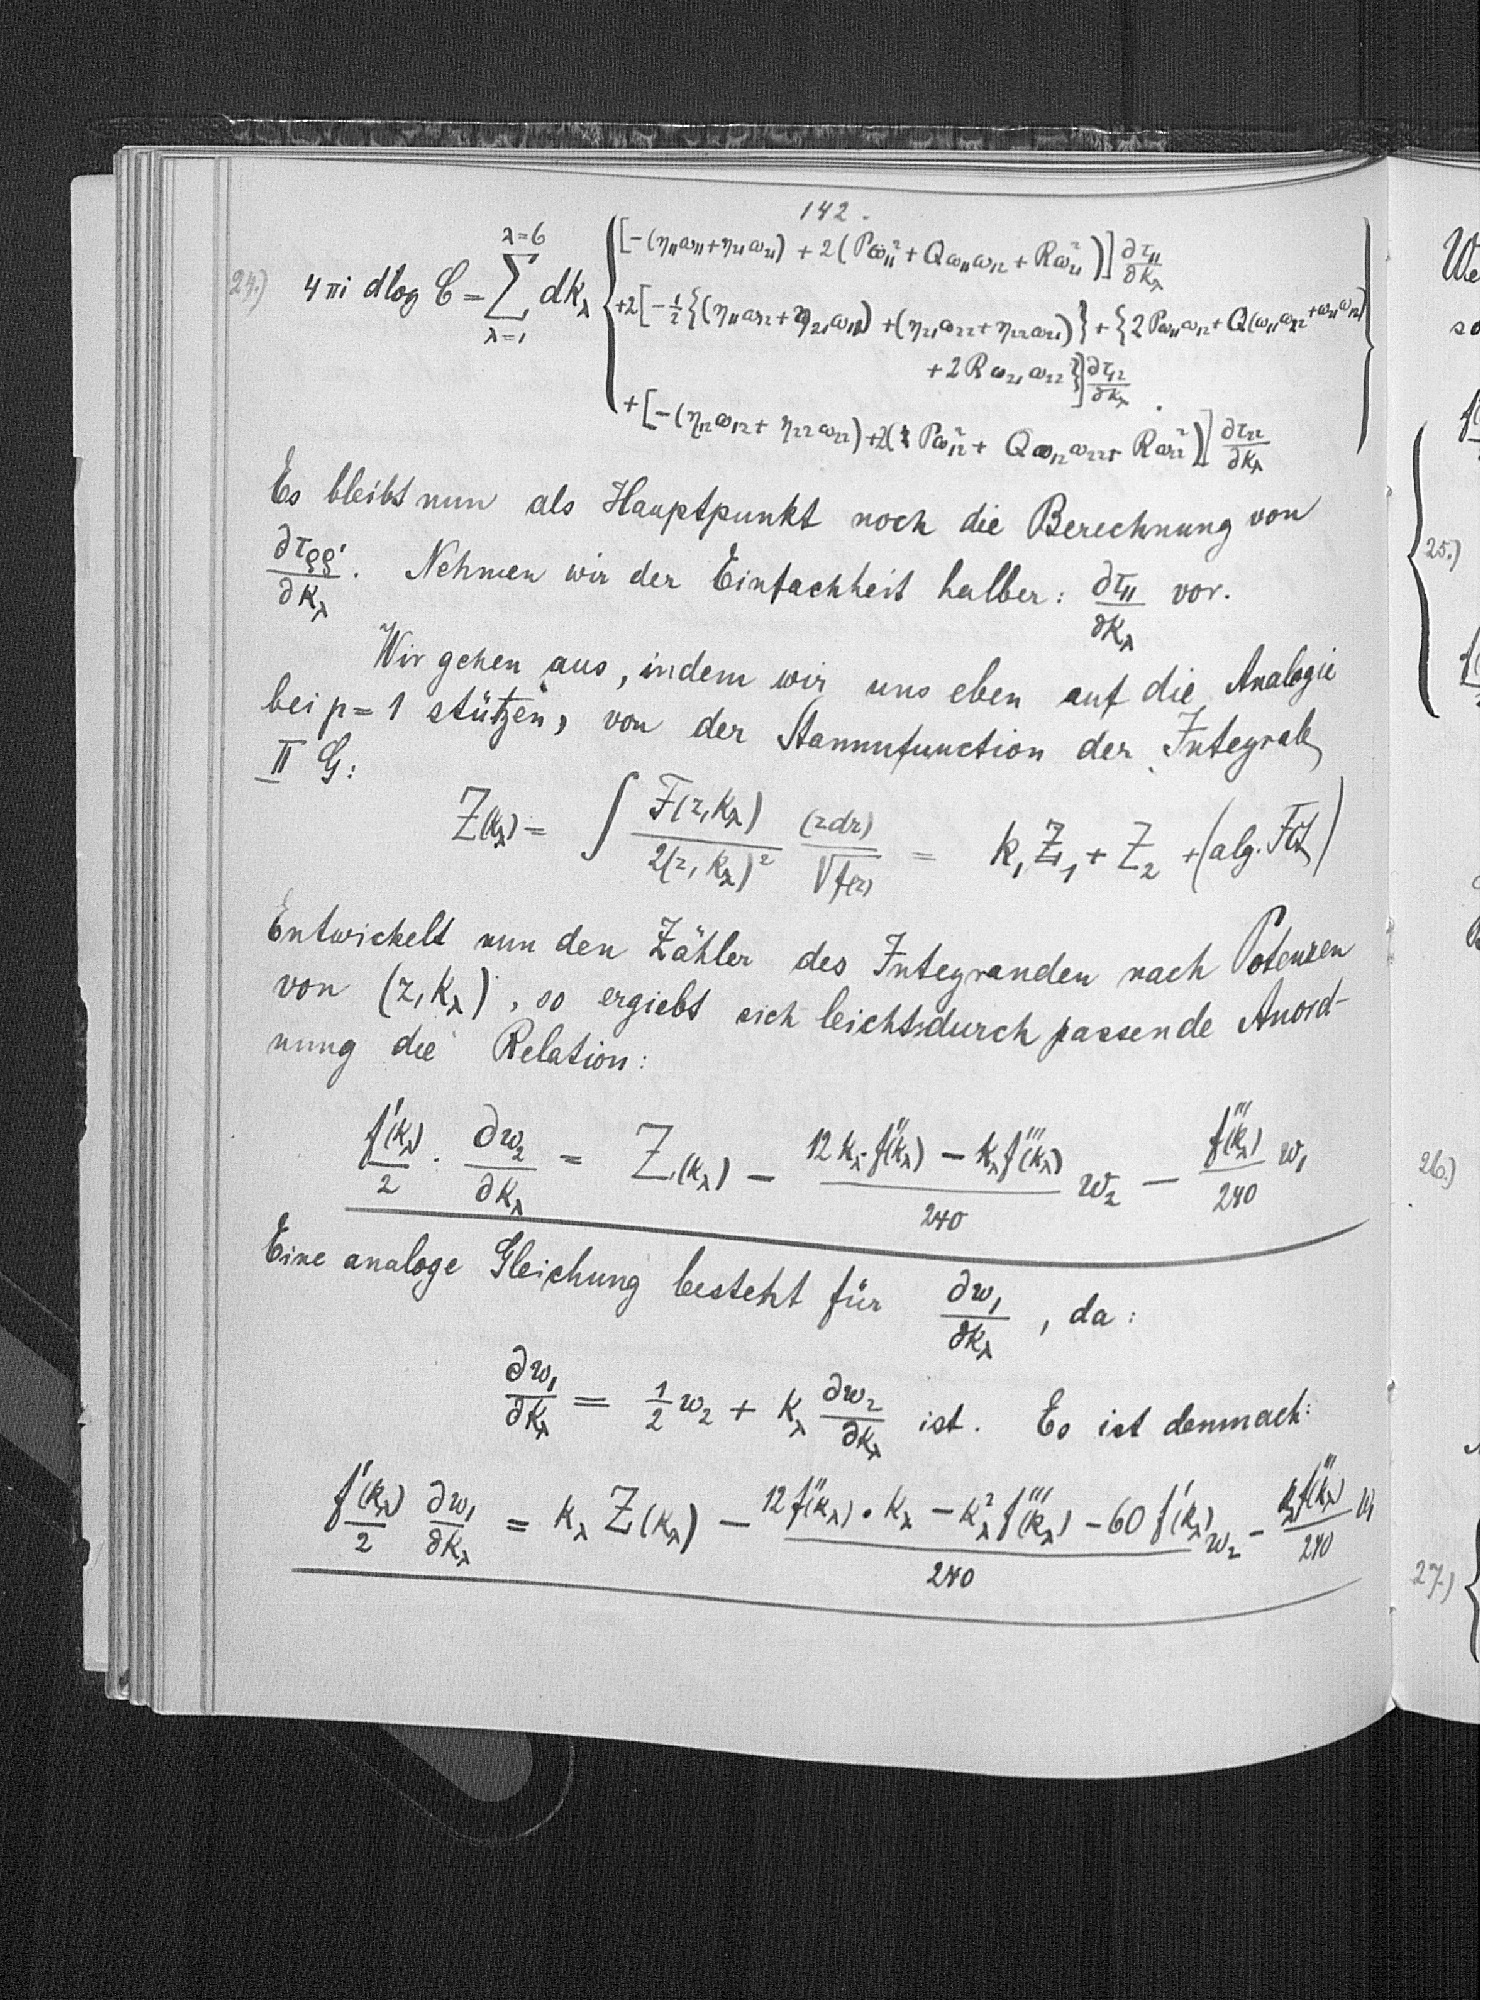 142.
24.) 4πi dlog C = Σ_{λ=1}^{λ=6} dk_λ { [-(η₁₁ω₁₁+η₂₁ω₂₁) + 2(Pω₁₁²+Qω₁₁ω₁₂+Rω₂₁²)] ∂τ₁₁/∂k_λ
+2[-½{(η₁₁ω₁₂+η₂₁ω₁₁) +(η₂₁ω₂₂+η₂₂ω₂₁)} + {2Pω₁₁ω₁₂+Q(ω₁₁ω₂₂+ω₂₁ω₁₂)
+2Rω₂₁ω₂₂}] ∂τ₁₂/∂k_λ
+[-(η₁₂ω₁₂+ η₂₂ω₂₂)+2(Pω₁₂²+ Qω₁₂ω₂₂+ Rω₂₂²)] ∂τ₂₂/∂k_λ }
Es bleibt nun als Hauptpunkt noch die Berechnung von
∂τ_ρρ'/∂k_λ. Nehmen wir der Einfachheit halber: ∂τ₁₁/∂k_λ vor.
Wir gehen aus, indem wir uns eben auf die Analogie
bei p=1 stützen, von der Stammfunction der Integrale
II G:
Z(k_λ) = ∫ F(z,k_λ)/2(z,k_λ)² (zdz)/√f(z) = k₁Z₁ + Z₂ +(alg. Fct)
Entwickelt nun den Zähler des Integranden nach Potenzen
von (z,k_λ), so ergiebt sich leicht durch passende Anord-
nung die Relation:
f'(k_λ)/2 · ∂w₂/∂k_λ = Z(k_λ) - (12k_λ·f''(k_λ) - k_λf'''(k_λ))/240 w₂ - f'''(k_λ)/240 w₁
Eine analoge Gleichung besteht für ∂w₁/∂k_λ, da:
∂w₁/∂k_λ = ½w₂ + k_λ ∂w₂/∂k_λ ist. Es ist demnach:
f'(k_λ)/2 ∂w₁/∂k_λ = k_λ Z(k_λ) - (12f''(k_λ)·k_λ - k_λ²f'''(k_λ) - 60f'(k_λ))/240 w₂ - k_λf'''(k_λ)/240 w₁
We
so
25.)
26.)
27.)